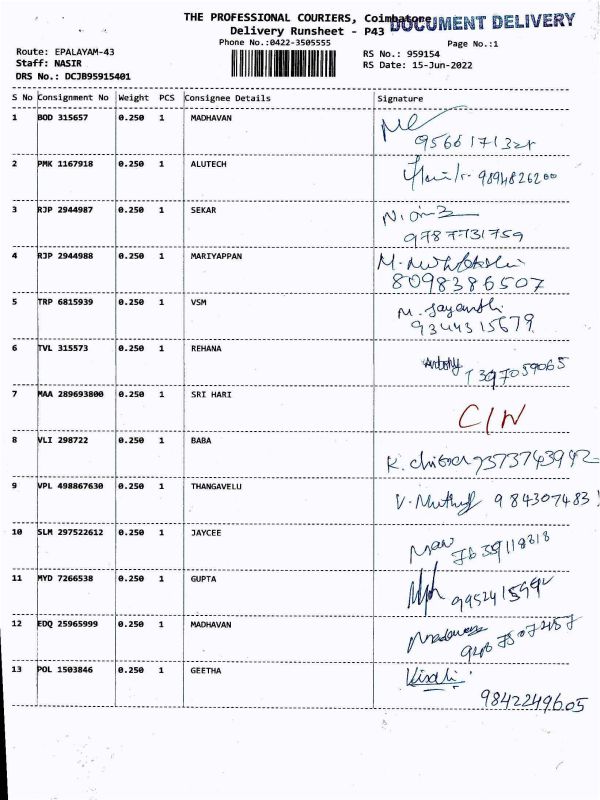 THE PROFESSIONAL COURIERS, Coimbatore
DOCUMENT DELIVERY
Delivery Runsheet - P43
Phone No.:0422-3505555
Page No.:1
Route: EPALAYAM-43
RS No.: 959154
Staff: NASIR
RS Date: 15-Jun-2022
DRS No.: DCJB95915401
S No Consignment No Weight PCS Consignee Details Signature
1 BOD 315657 0.250 1 MADHAVAN
2 PMK 1167918 0.250 1 ALUTECH
9894826200
3 RJP 2944987 0.250 1 SEKAR
9787731759
4 RJP 2944988 0.250 1 MARIYAPPAN
8098386507
5 TRP 6815939 0.250 1 VSM
M. Jayanthi
9344315679
6 TVL 315573 0.250 1 REHANA
Antony
7397059065
7 MAA 289693800 0.250 1 SRI HARI
C/N
8 VLI 298722 0.250 1 BABA
K. chitra 7373743942
9 VPL 498867630 0.250 1 THANGAVELU
984307483
10 SLM 297522612 0.250 1 JAYCEE
11 MYD 7266538 0.250 1 GUPTA
12 EDQ 25965999 0.250 1 MADHAVAN
13 POL 1503846 0.250 1 GEETHA
9842249605